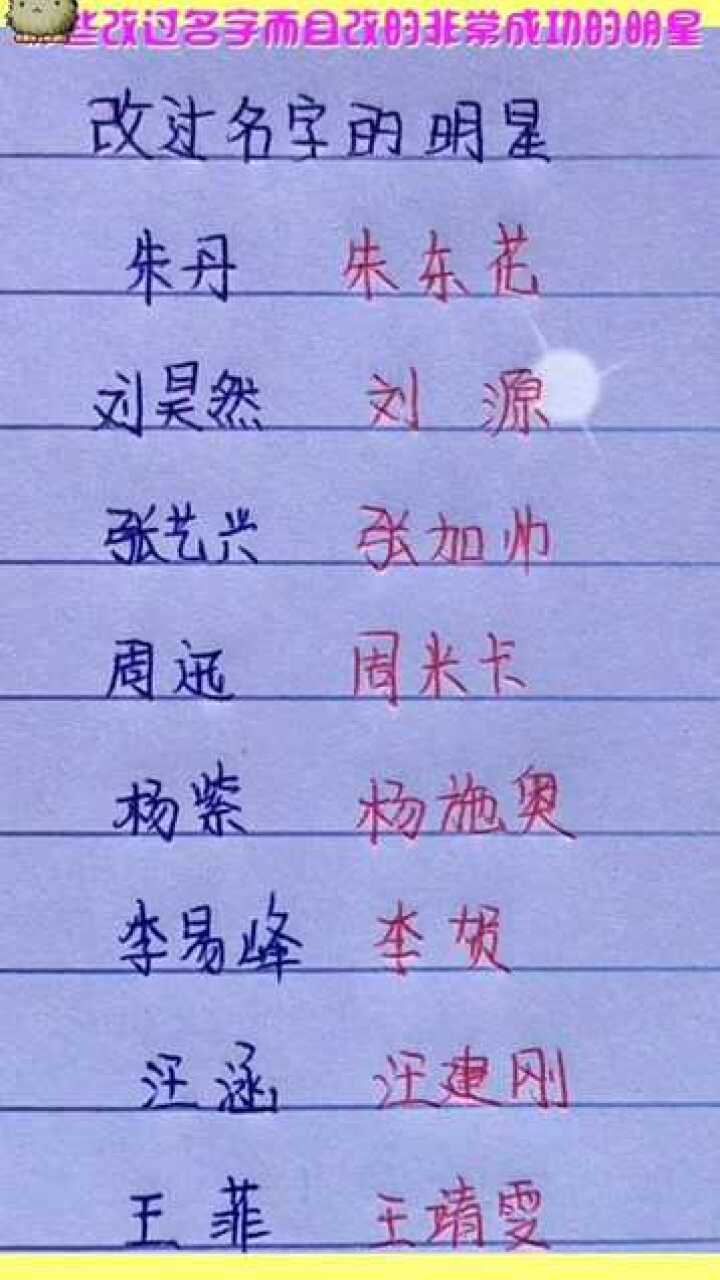 些改过名字而且改的非常成功的明星
改过名字的明星
朱丹 朱东花
刘昊然 刘源
张艺兴 张加帅
周迅 周米卡
杨紫 杨施奥
李易峰 李贺
汪涵 汪建刚
王菲 王靖雯